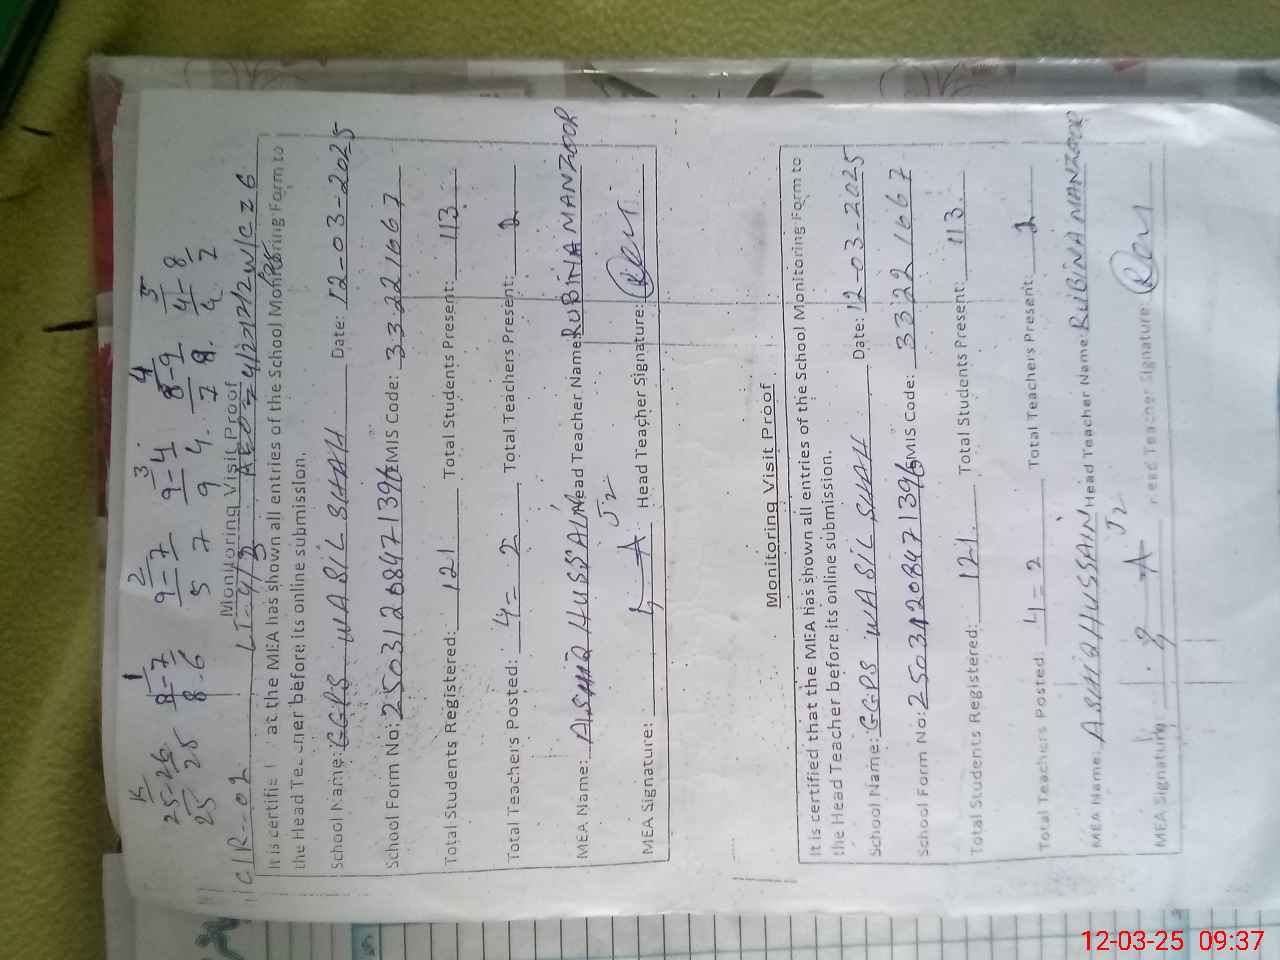 K 1 2 3 4 5
25-26 8-7 9-7 9-4 8-9 4-8
25 25 8-6 5 7 9 4. 7 8. 4 7
C/R--02
Monitoring Visit Proof
at the MEA has shown all entries of the School Monitoring Form to
the Head before its online submission.
School Name: GGPS WASIL SHAH Date: 12-03-2025
School Form No: 25031208471396 EMIS Code: 33221667
Total Students Registered: 121 Total Students Present: 113
Total Teachers Posted: 4=2 Total Teachers Present: 2
MEA Name: ASMIQ HUSSAIN Head Teacher Name: RUBINA MANZOOR
MEA Signature: Head Teacher Signature:
Monitoring Visit Proof
It is certified that the MEA has shown all entries of the School Monitoring Form to
the Head Teacher before its online submission.
School Name: GGPS WASIL SHAH Date: 12-03-2025
School Form No: 25031208471396 EMIS Code: 33221667
Total Students Registered: 121. Total Students Present: 113.
Total Teachers Posted: 4=2 Total Teachers Present: 2
MEA Name: ASMIQ HUSSAIN Head Teacher Name: RUBINA MANZOOR
MEA Signature: Head Teacher Signature
12-03-25 09:37